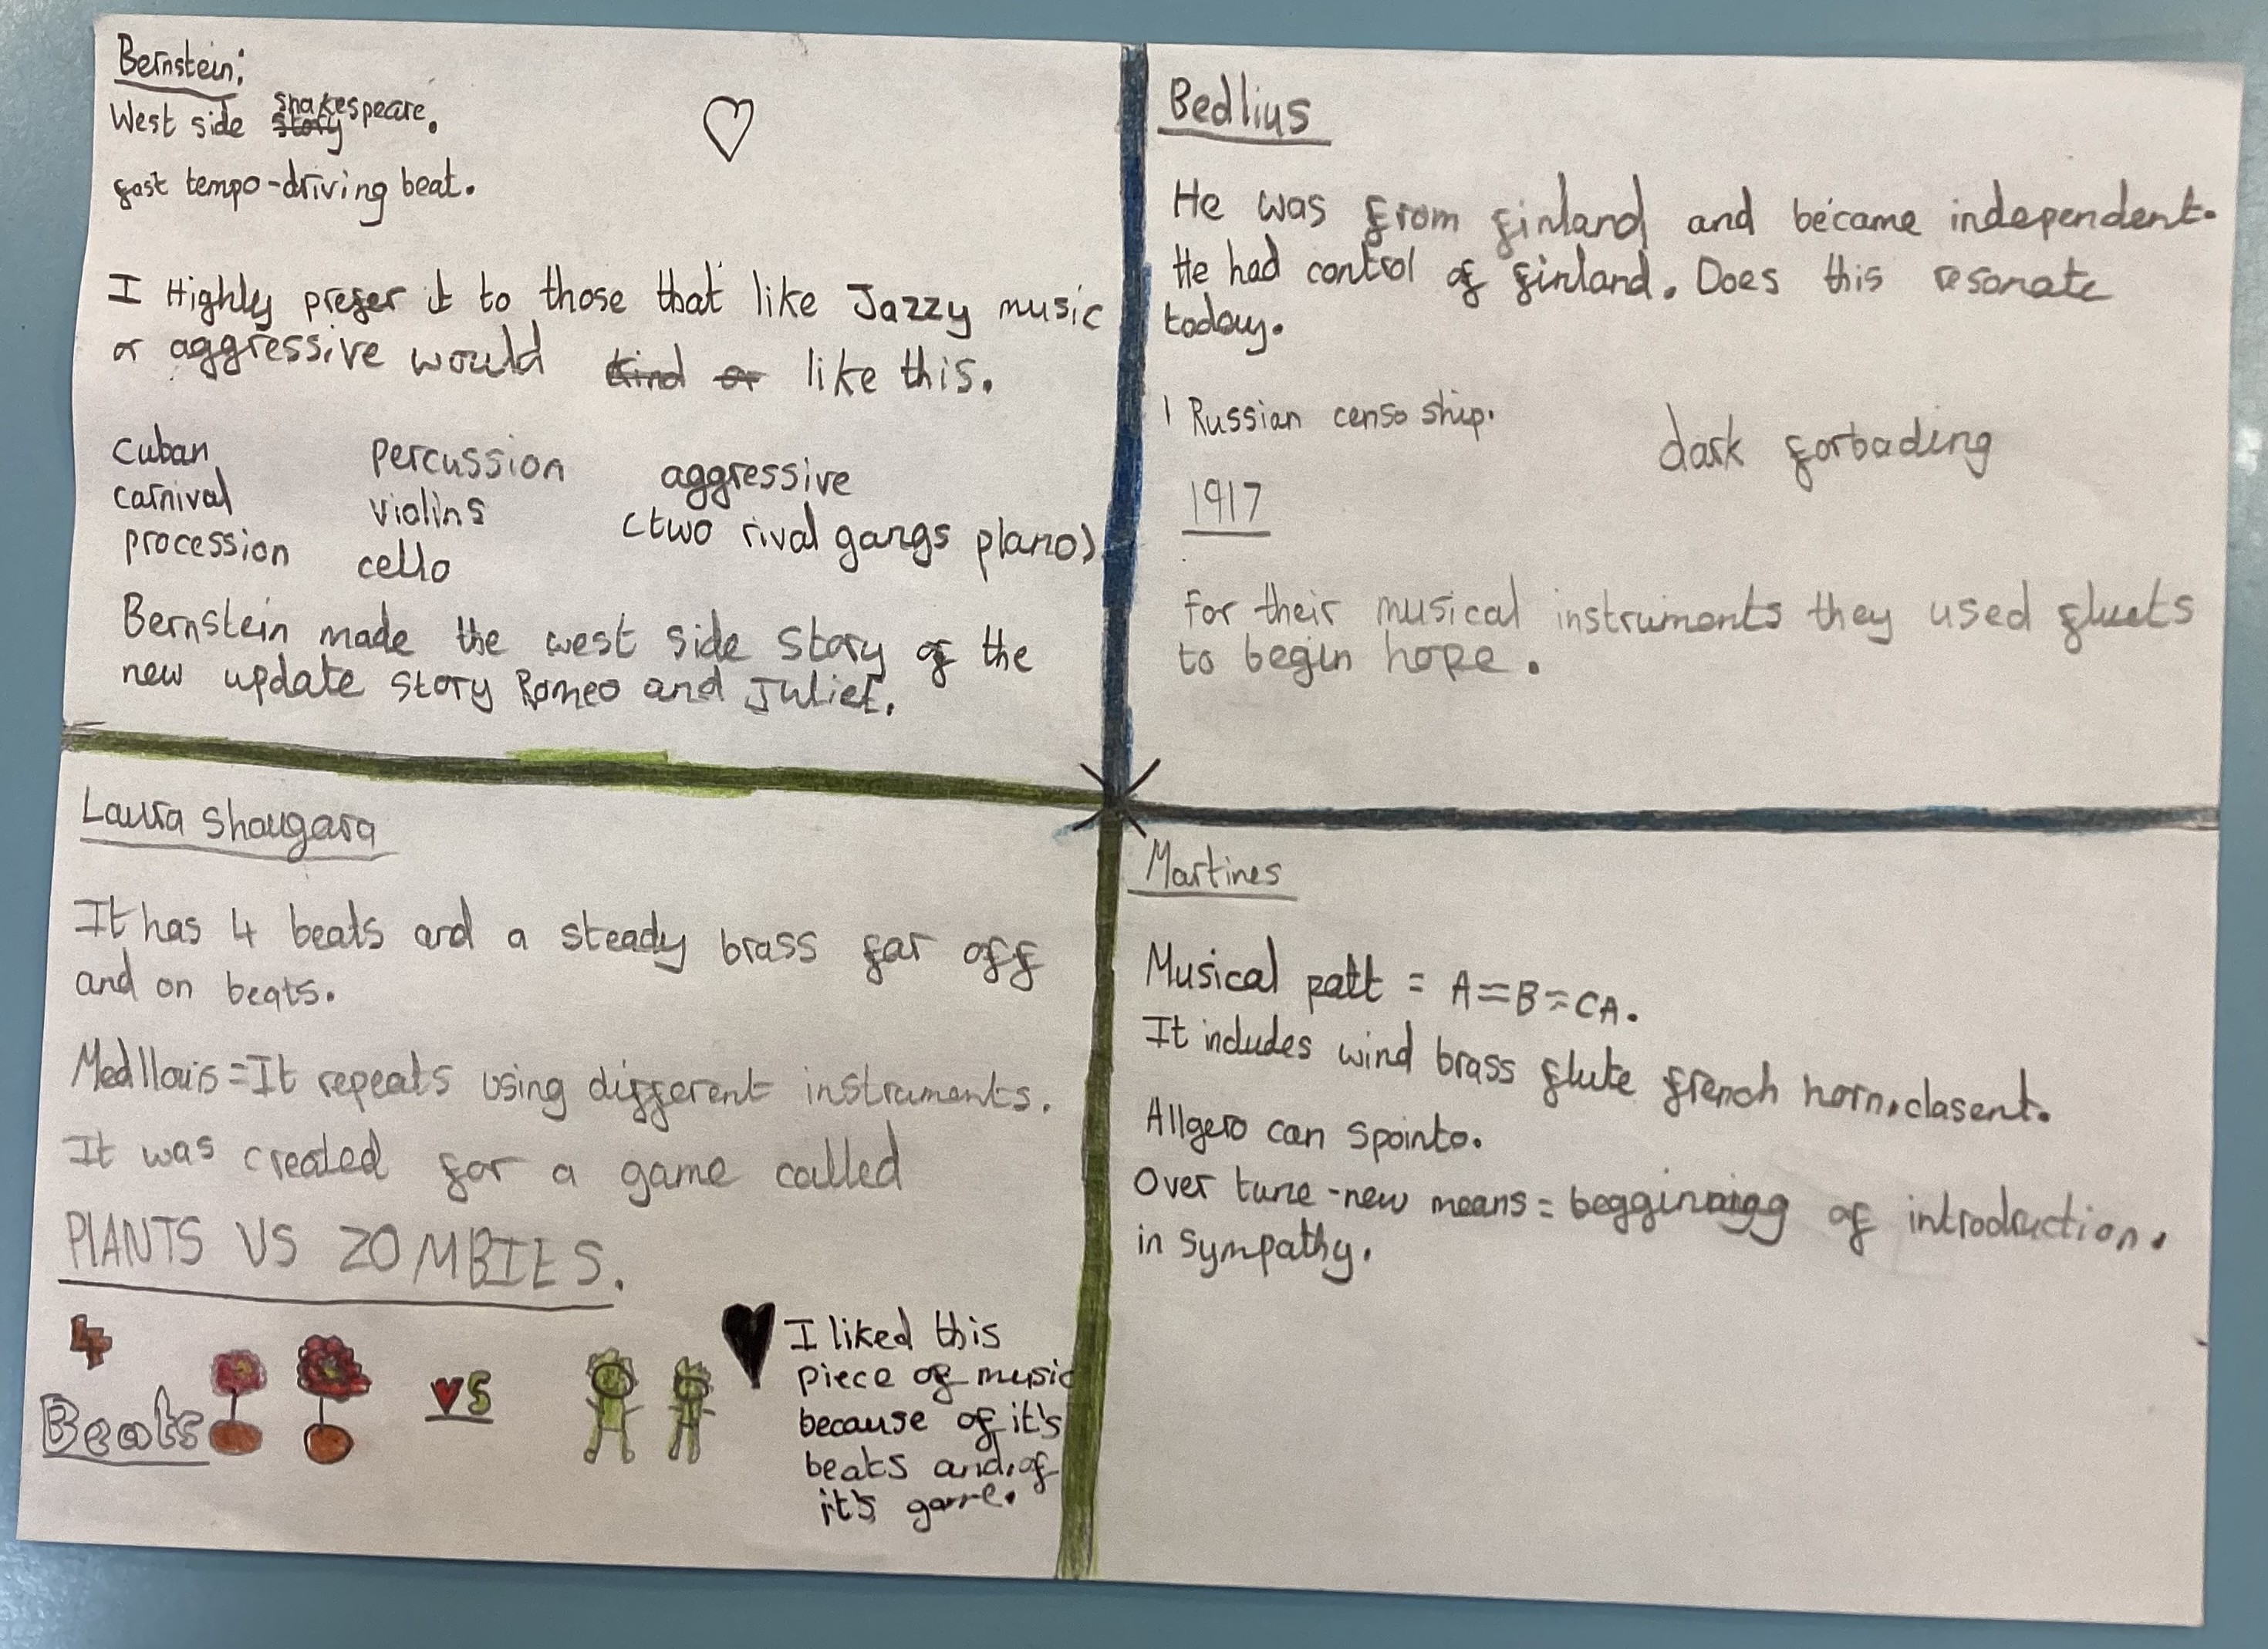 Bernstein:
West side story Shakespeare.
fast tempo-driving beat.
I Highly prefer it to those that like Jazzy music
or aggressive would kind or like this.
cuban percussion aggressive
carnival violins (two rival gangs piano)
procession cello
Bernstein made the west side story of the
new update story Romeo and Juliet.
Bedlius
He was from finland and became independent.
He had control of finland. Does this resonate
today.
Russian censo ship.
dark forbading
1917
For their musical instruments they used fluets
to begin hope.
Laura Shaugara
It has 4 beats and a steady brass far off
and on beats.
Medllouis=It repeats using different instruments.
It was created for a game called
PLANTS VS ZOMBIES.
4
Beats
VS
I liked this
piece of music
because of it's
beats and of
it's game.
Martines
Musical patt = A=B=CA.
It includes wind brass flute french horn.clasent.
Allgero can spointo.
Over tune-new means = begginning of introdruction.
in sympathy.